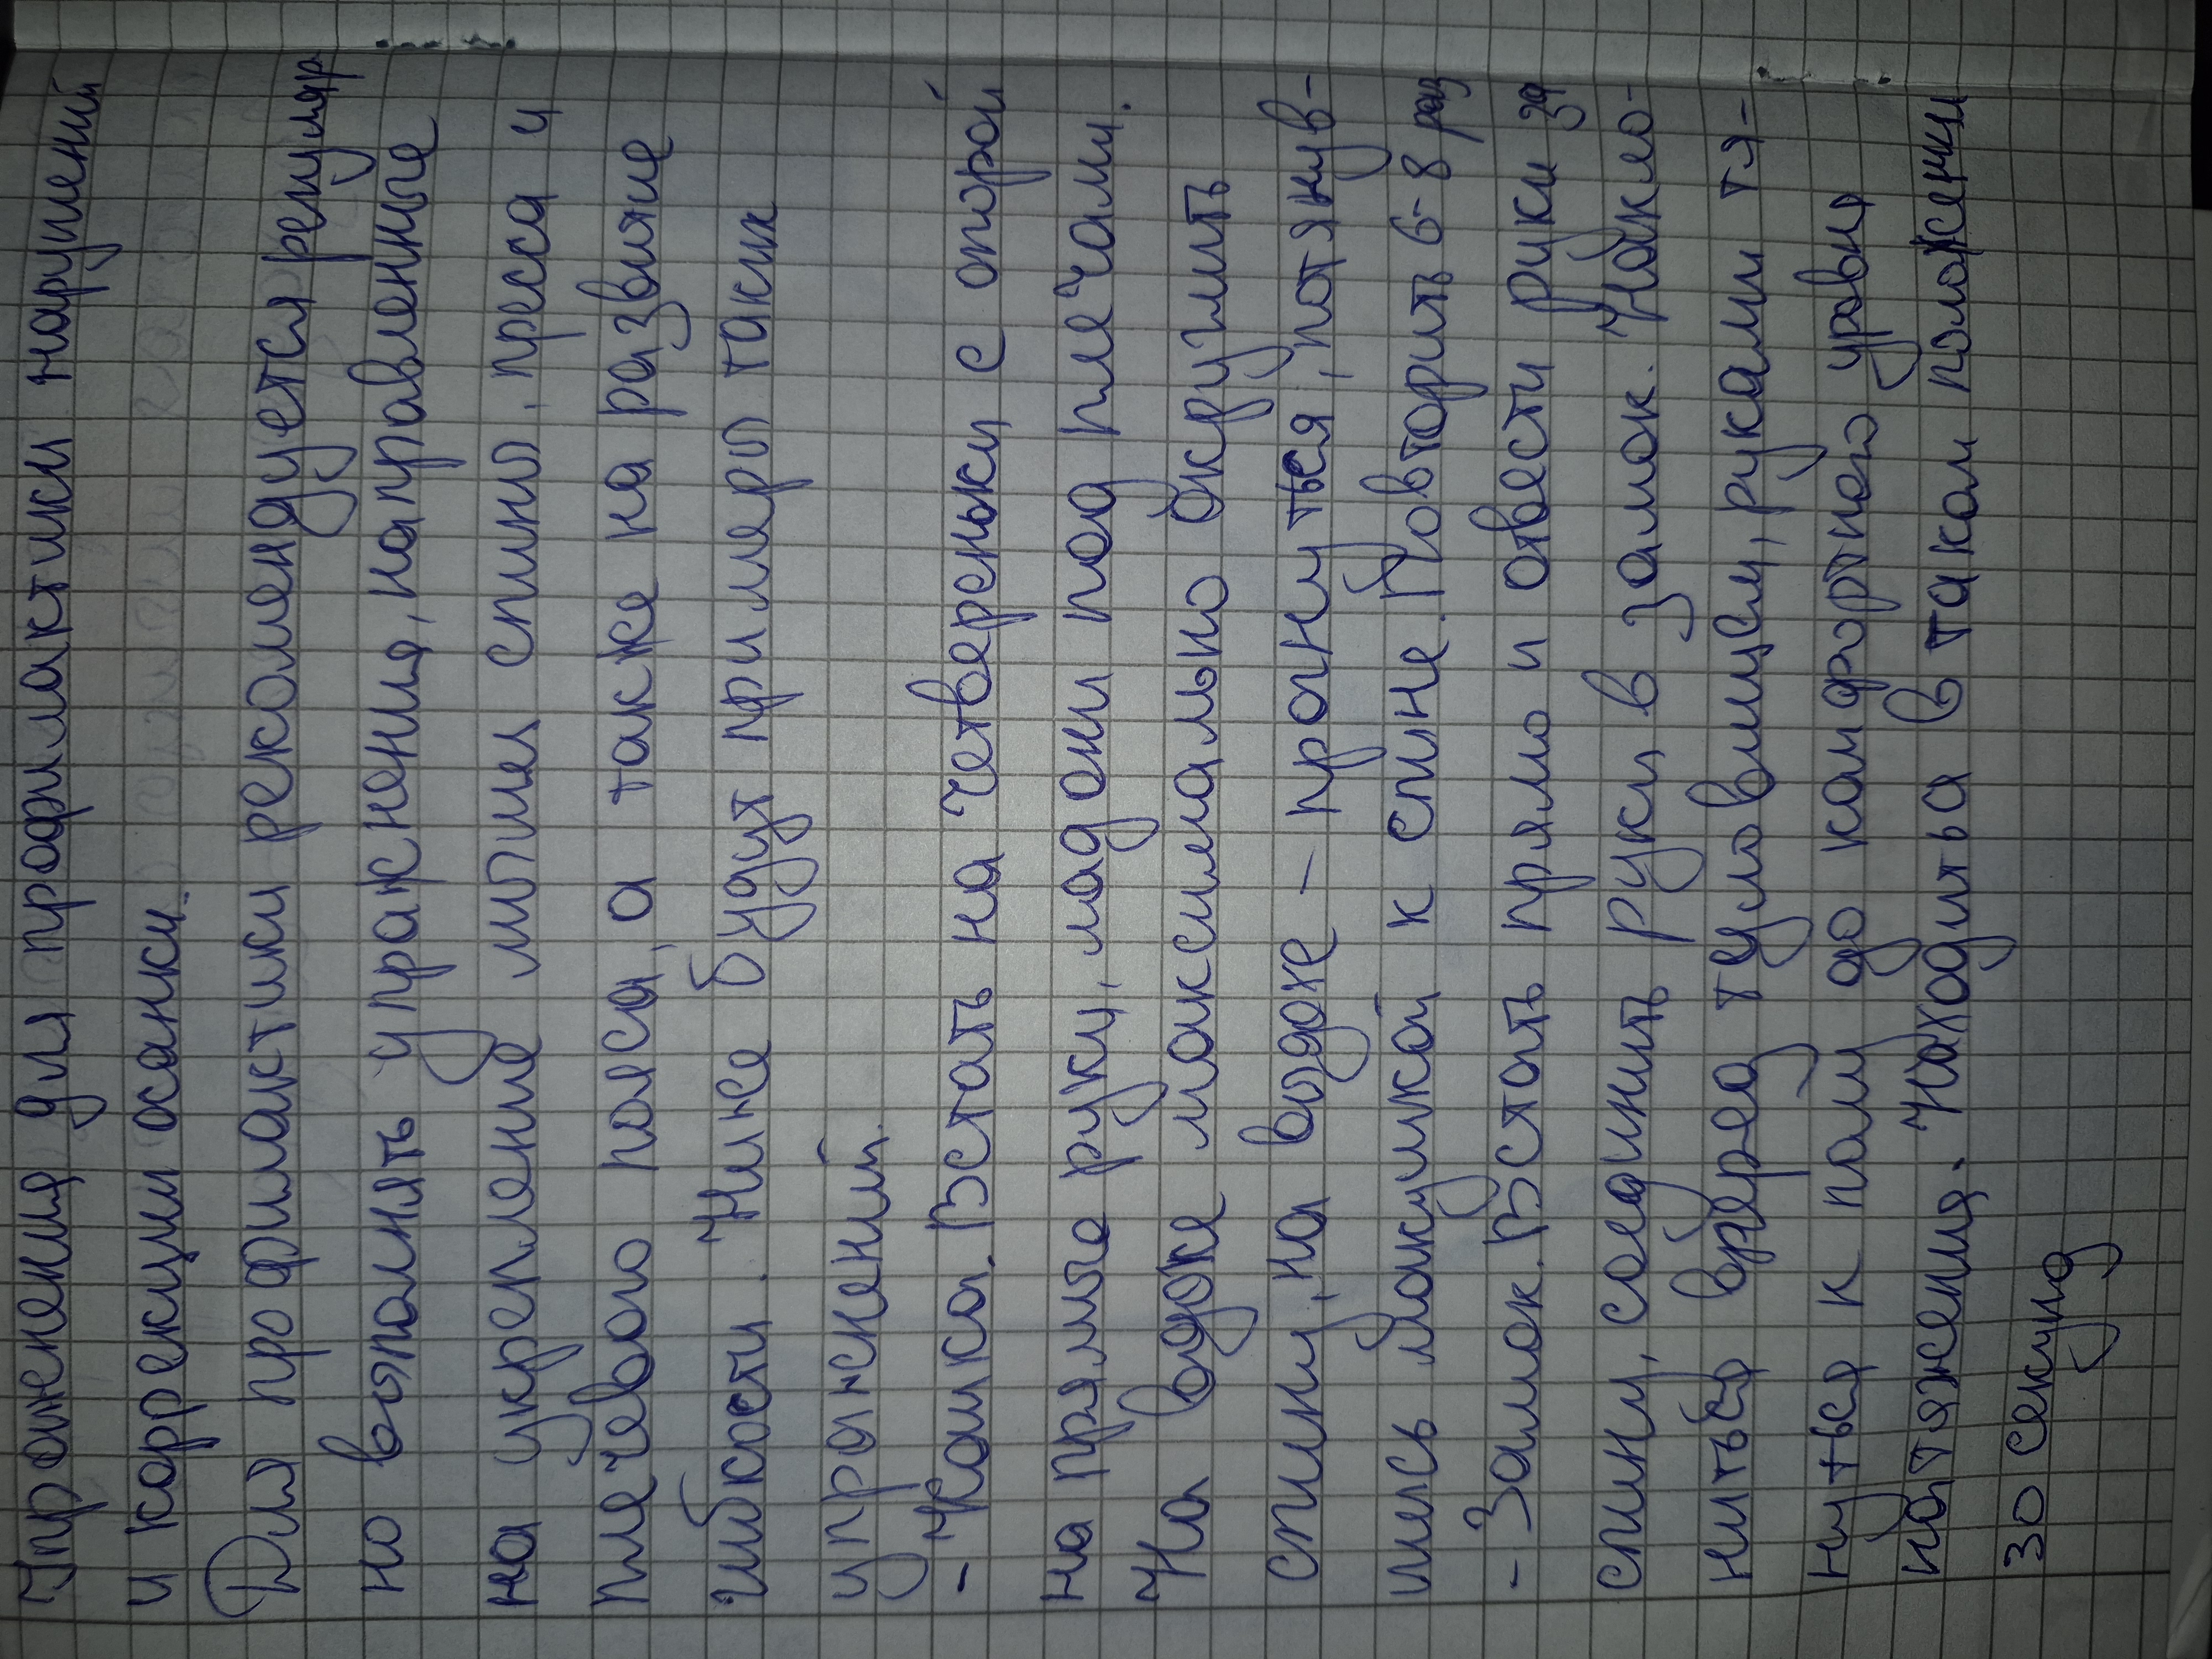 Упражнения для профилактики нарушений
и коррекции осанки.
Для профилактики рекомендуется регуляр
но выполнять упражнения, направленные
на укрепление мышц спины, пресса и
плечевого пояса, а также на развитие
гибкости. Ниже будут примеры таких
упражнений.
- Кошка. Встать на четвереньки с опорой
на прямые руки, ладони под плечами.
На вдохе максимально округлить
спину, на выдохе – прогнуться, потянув-
шись макушкой к спине. Повторить 6-8 раз
- Замок. Встать прямо и отвести руки за
спину, соединить руки в замок. Накло-
ниться вперед туловищем, руками тя-
нуться к полу до комфортного уровня
натяжения. Находиться в таком положении
30 секунд